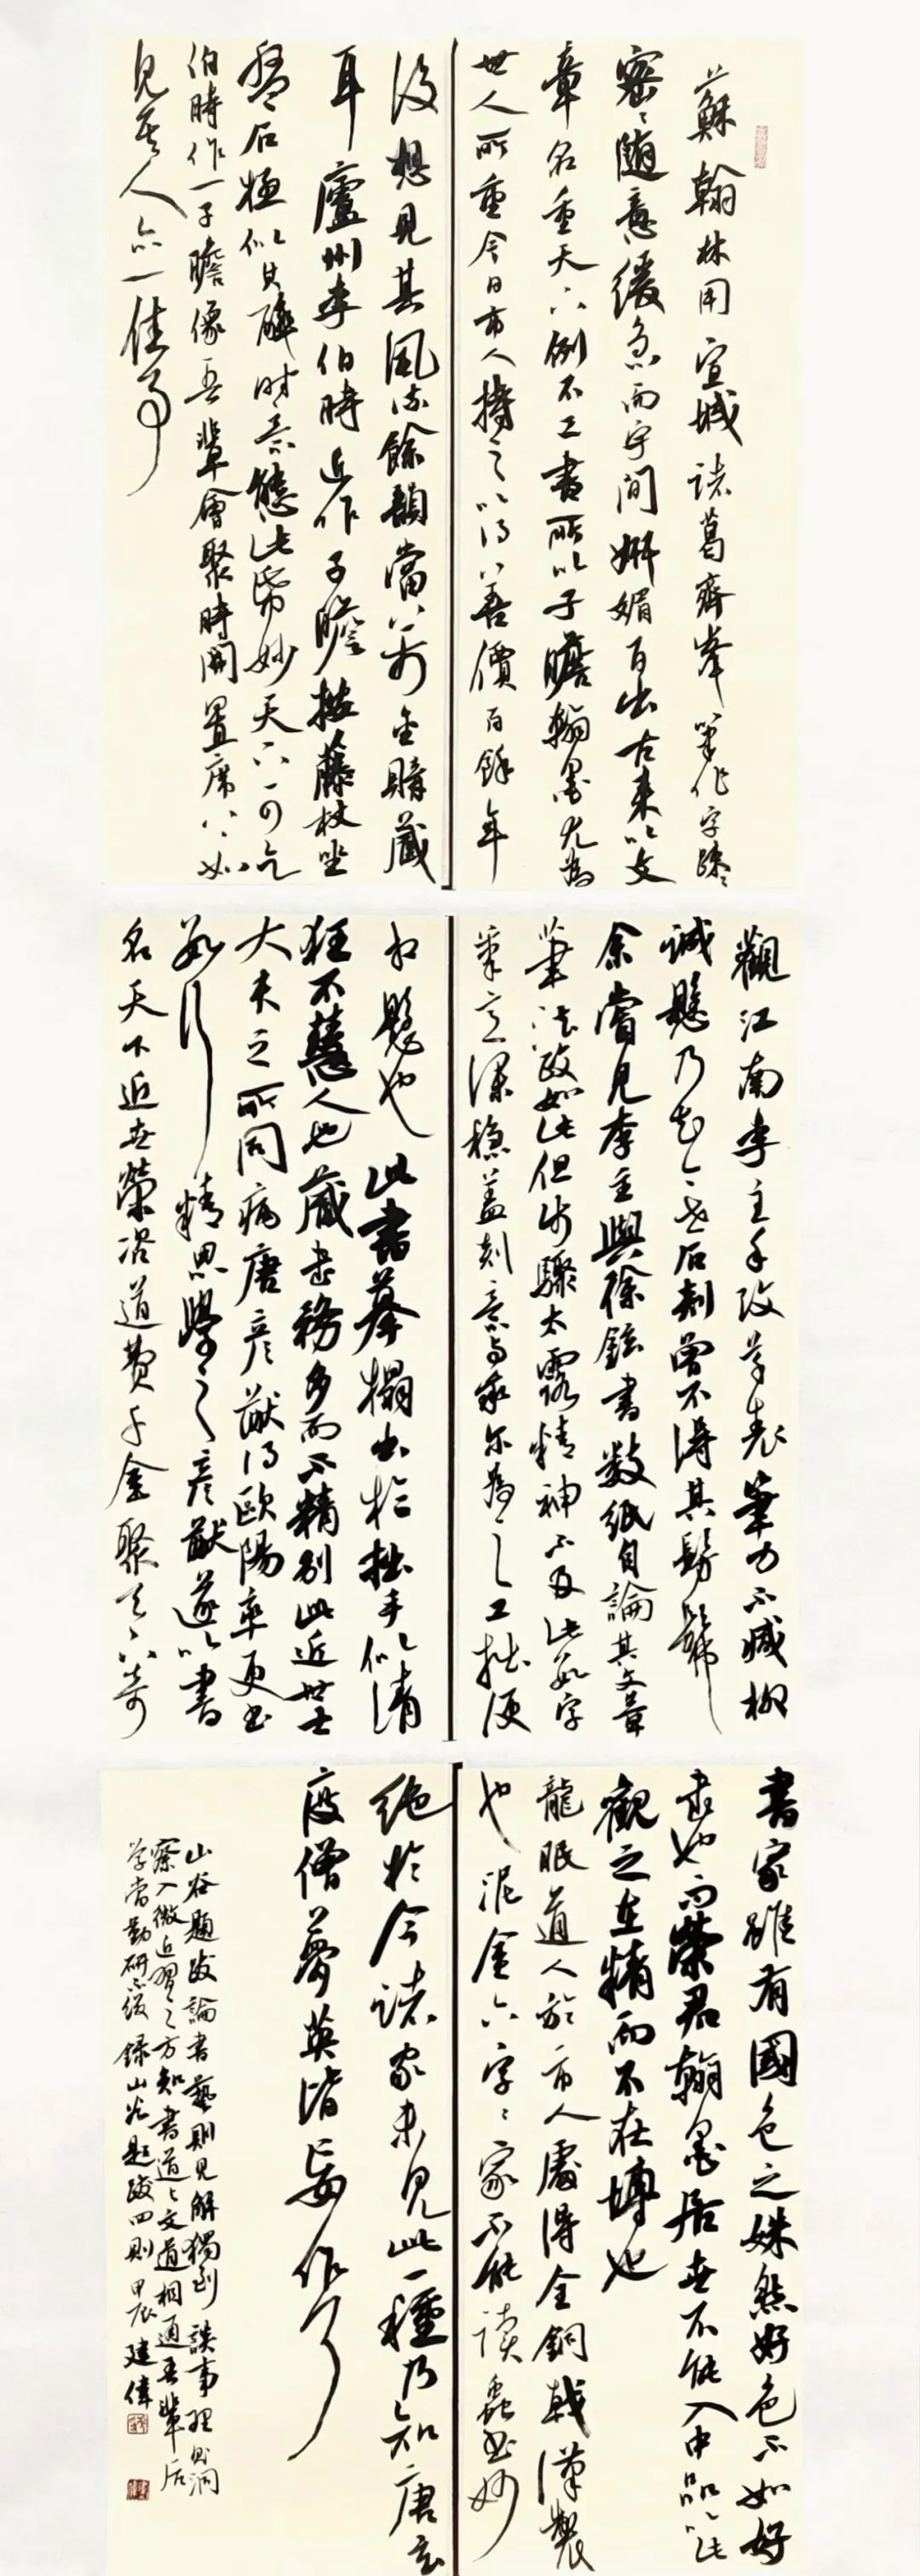 蘇翰林用宣城諸葛齊峰筆作字疎疎
密密隨意緩急而字間妍媚百出古來以文
章名重天下例不工書所以子瞻翰墨尤為
世人所重今日市人持之以得善價百餘年
後想見其風流餘韻當萬金購藏
耳廬州李伯時近作子瞻按藤杖坐
盤石極似其醉時意態此紙妙天下可乞
伯時作一子瞻像吾輩會聚時開置席上如
見其人亦一佳事
觀江南李主手改草表筆力不減柳
誠懸乃知今世石刻曾不得其髣髴
余嘗見李主與徐鉉書數紙自論其文章
筆法政如此但步驟太露精神不及此數字
筆意深穩蓋刻意與率爾為之工拙便
相懸也此書摹搨出於拙手似清
狂不慧人也藏書務多而不精別此近世士
大夫之所同病唐彥猷得歐陽率更書
數行精思學之彥猷遂以書
名天下近世榮咨道費千金聚天下奇
書家雖有國色之姝然好色不如好
書也而榮君翰墨居世不能入中品以此
觀之在精而不在博也
龍眠道人於市人處得金銅戟漢製
也泥金六字字家不能讀蟲書妙
絕於今諸家未見此一種乃知唐玄
度僧夢英皆妄作了
山谷題跋論書藝則見解獨到談事理則洞
察入微近習之方知書道與文道相通吾輩后
學當勤研不綴錄山谷題跋四則甲辰建偉